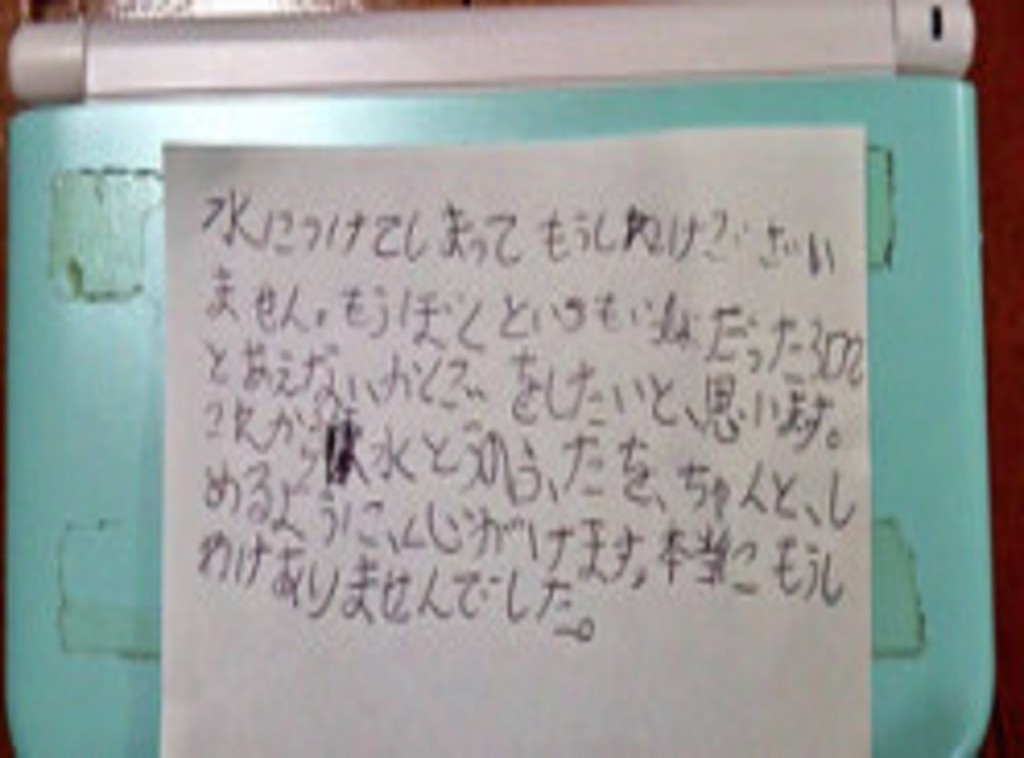 水につけてしまってもうしぬけございい
ません。もうぼくといつもいっしょだった3DS
とあえないかくごをしたいと、思います。
次から水とうのふたを、ちゃんと、し
めるように、心がけます。本当にもうし
わけありませんでした。